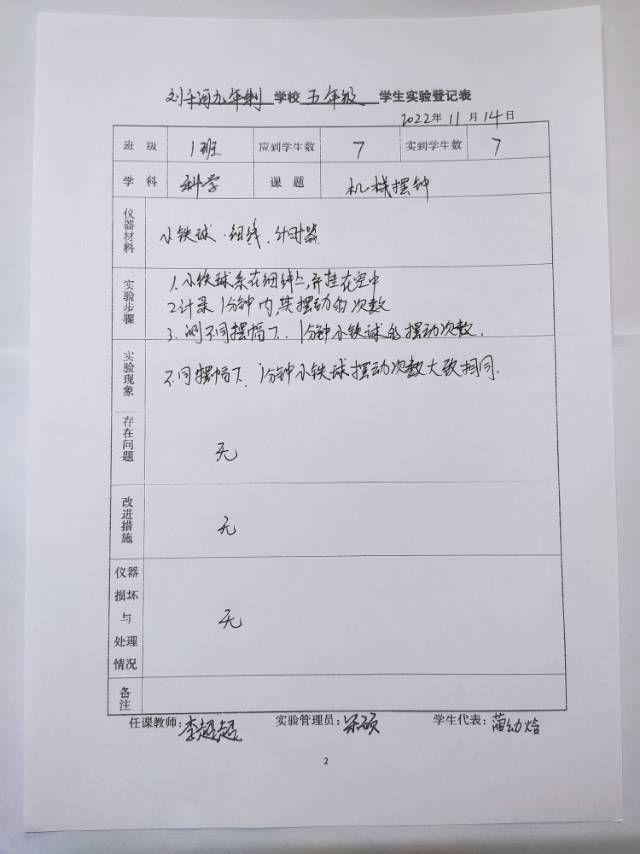 刘千河九年制 学校 五年级 学生实验登记表
2022年 11 月 14 日
班 级 1班 应到学生数 7 实到学生数 7
学 科 科学 课 题 机械摆钟
仪器材料 小铁球、细线、计时器
实验步骤 1.小铁球系在细线上,并挂在空中
2.计录1分钟内,其摆动的次数
3.测不同摆幅下、1分钟小铁球的摆动次数.
实验现象 不同摆幅下、1分钟小铁球摆动次数大致相同.
存在问题 无
改进措施 无
仪器损坏与处理情况 无
备注
任课教师:李超超 实验管理员: 学生代表:
2